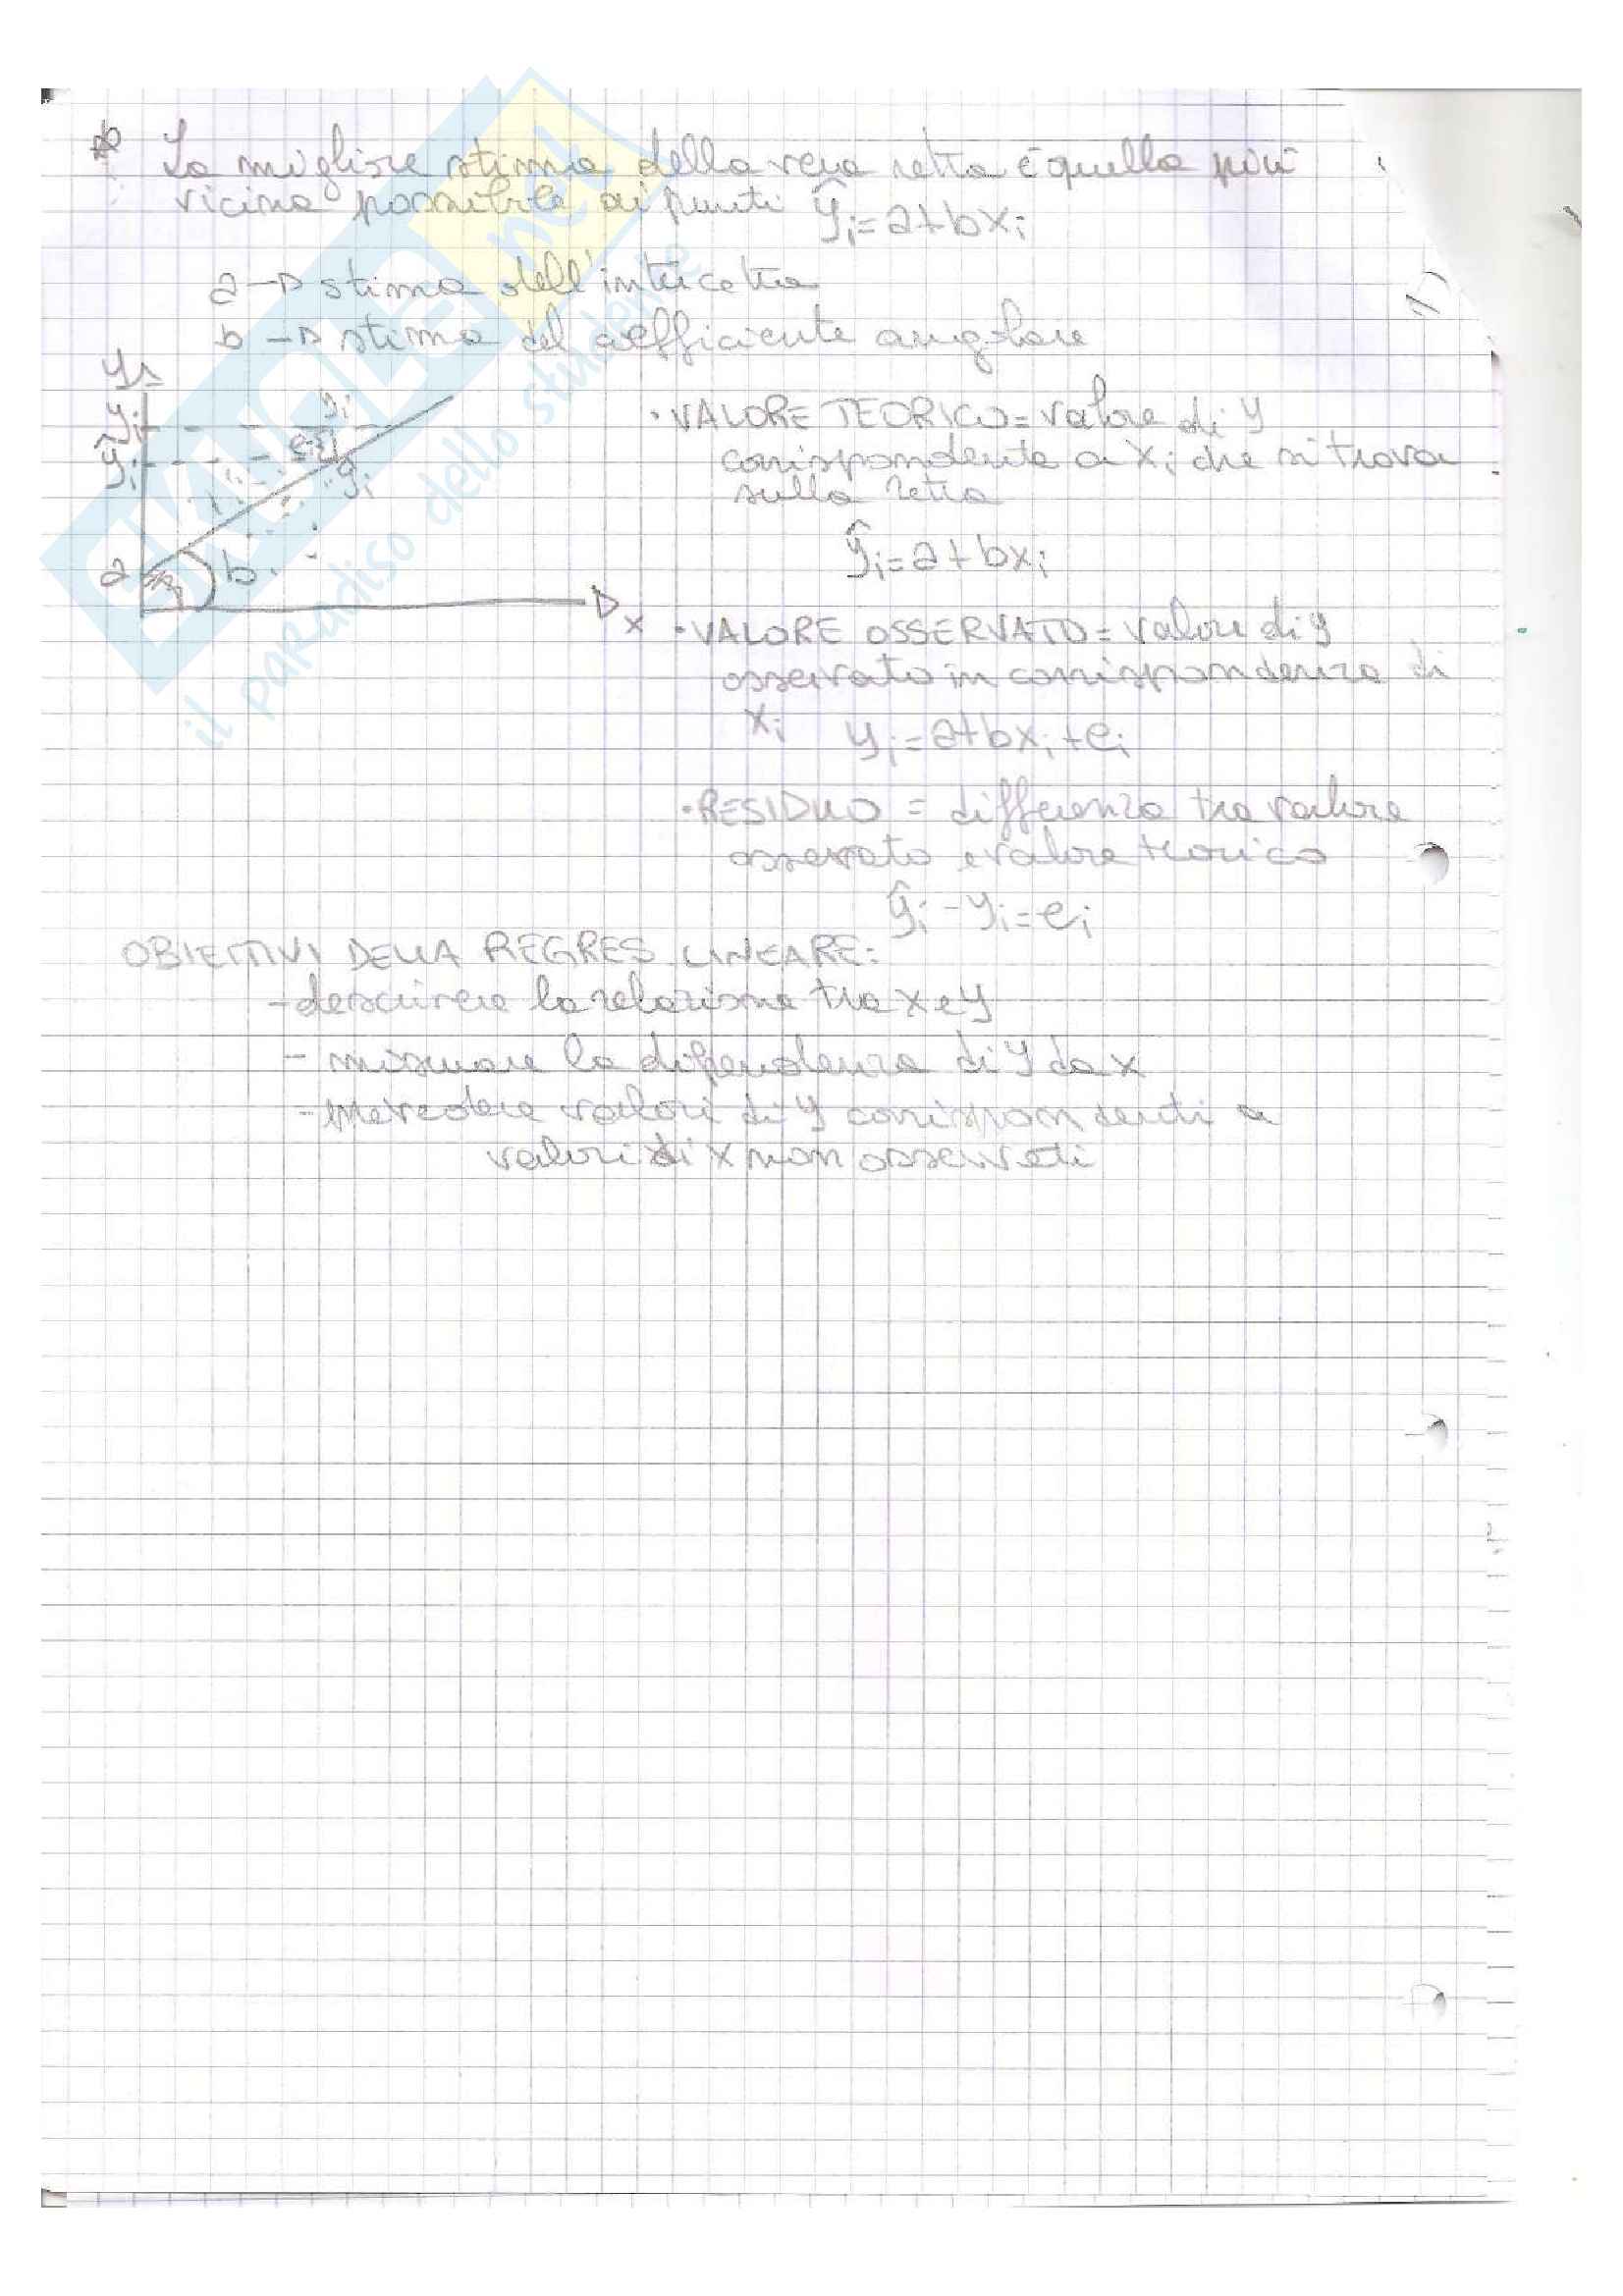 La migliore stima della vera retta è quella più
vicina possibile ai punti ŷi=a+bxi
a → stima dell'intercetta
b → stima del coefficiente angolare
y
yi
ŷi
yi
ei
ŷi
a
b
x
• VALORE TEORICO = valore di y
corrispondente a xi che si trova
sulla retta
ŷi=a+bxi
• VALORE OSSERVATO = valore di y
osservato in corrispondenza di
xi yi=a+bxi+ei
• RESIDUO = differenza tra valore
osservato e valore teorico
ŷi-yi=ei
OBIETTIVI DELLA REGRES. LINEARE:
- descrivere la relazione tra x e y
- misurare la dipendenza di y da x
- prevedere valori di y corrispondenti a
valori di x non osservati
SKUOLA.net
il paradiso dello studente